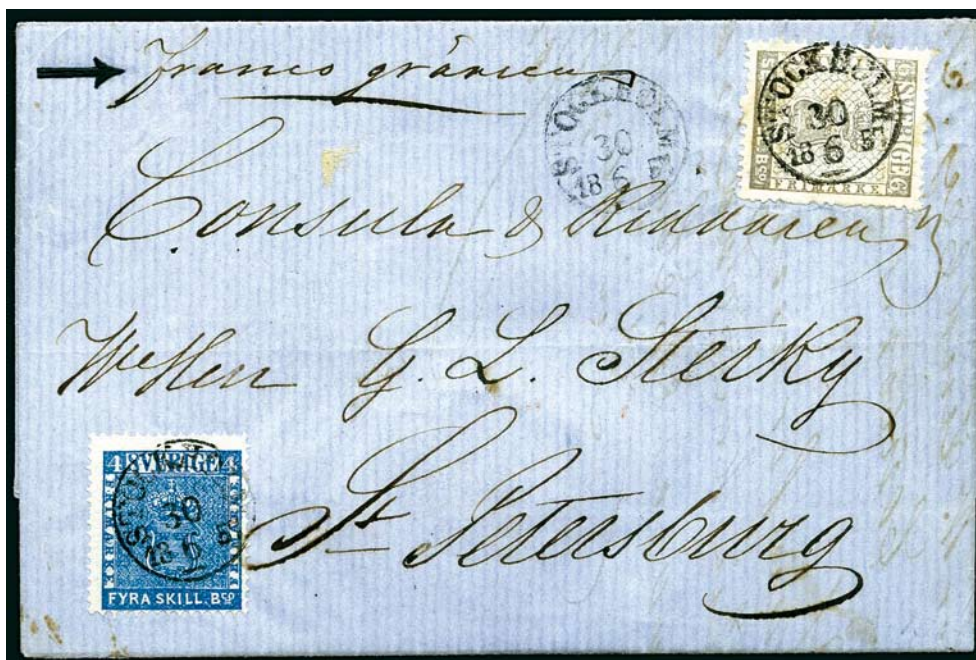 franco gränsen
STOCKHOLM
30
18 6
STOCKHOLM
30
18 6 5
SVERIGE
FRIMÄRKE
Consuln & Riddaren
G. L. Sterky
St Petersburg
4 SVERIGE 4
30
18 6 5
FYRA SKILL. Bco